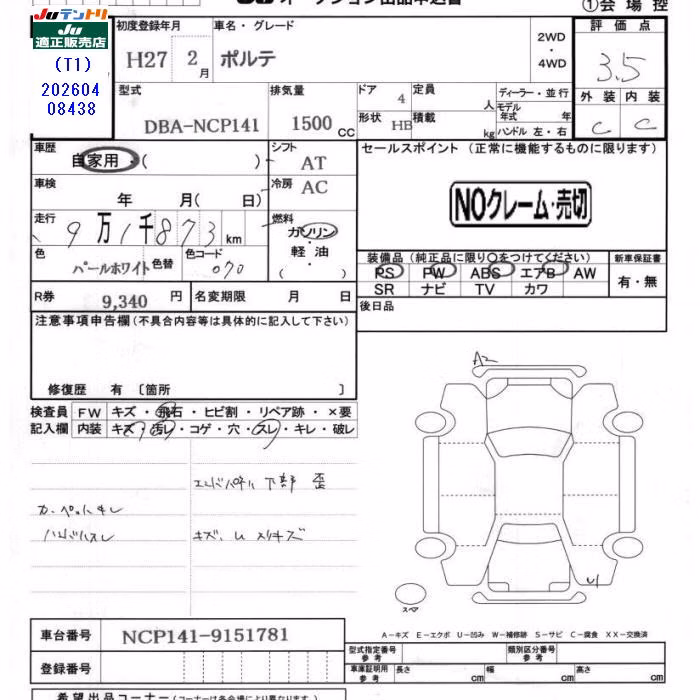 JUテントリ
JU
適正販売店
(T1)
202604
08438
①会場控
初度登録年月
車名・グレード
2WD
・
4WD
評価点
H27 2月
ポルテ
3.5
型式
排気量
ドア 4
定員 人
ディーラー・並行
モデル年式 年
外装 内装
DBA-NCP141
1500 CC
形状 HB
積載 kg
ハンドル 左・右
C C
車歴
自家用・( )
シフト AT
セールスポイント (正常に機能するものに限ります)
車検
年 月( 日)
冷房 AC
NOクレーム・売切
走行
9万1千873km
燃料
ガソリン
・
軽油
( )
色
パールホワイト
色替
色コード
070
装備品(純正品に限り○をつけてください)
新車保証書
PS PW ABS エアB AW
有・無
SR ナビ TV カワ
R券 9,340 円
名変期限 月 日
後日品
注意事項申告欄(不具合内容等は具体的に記入して下さい)
修復歴 有〔箇所 〕
検査員
記入欄
FW キズ・飛石・ヒビ割・リペア跡・×要
内装 キズ・汚レ・コゲ・穴・スレ・キレ・破レ
エンドパネル下部 歪
カーペットキレ
ハンドルスレ
キズ、U メリキズ
A2
U1
スペア
A-キズ E-エクボ U-凹み W-補修跡 S-サビ C-腐食 XX-交換済
車台番号 NCP141-9151781
登録番号
型式指定番号
参考
類別区分番号
参考
車庫証明用
参考
長さ cm
幅 cm
高さ cm